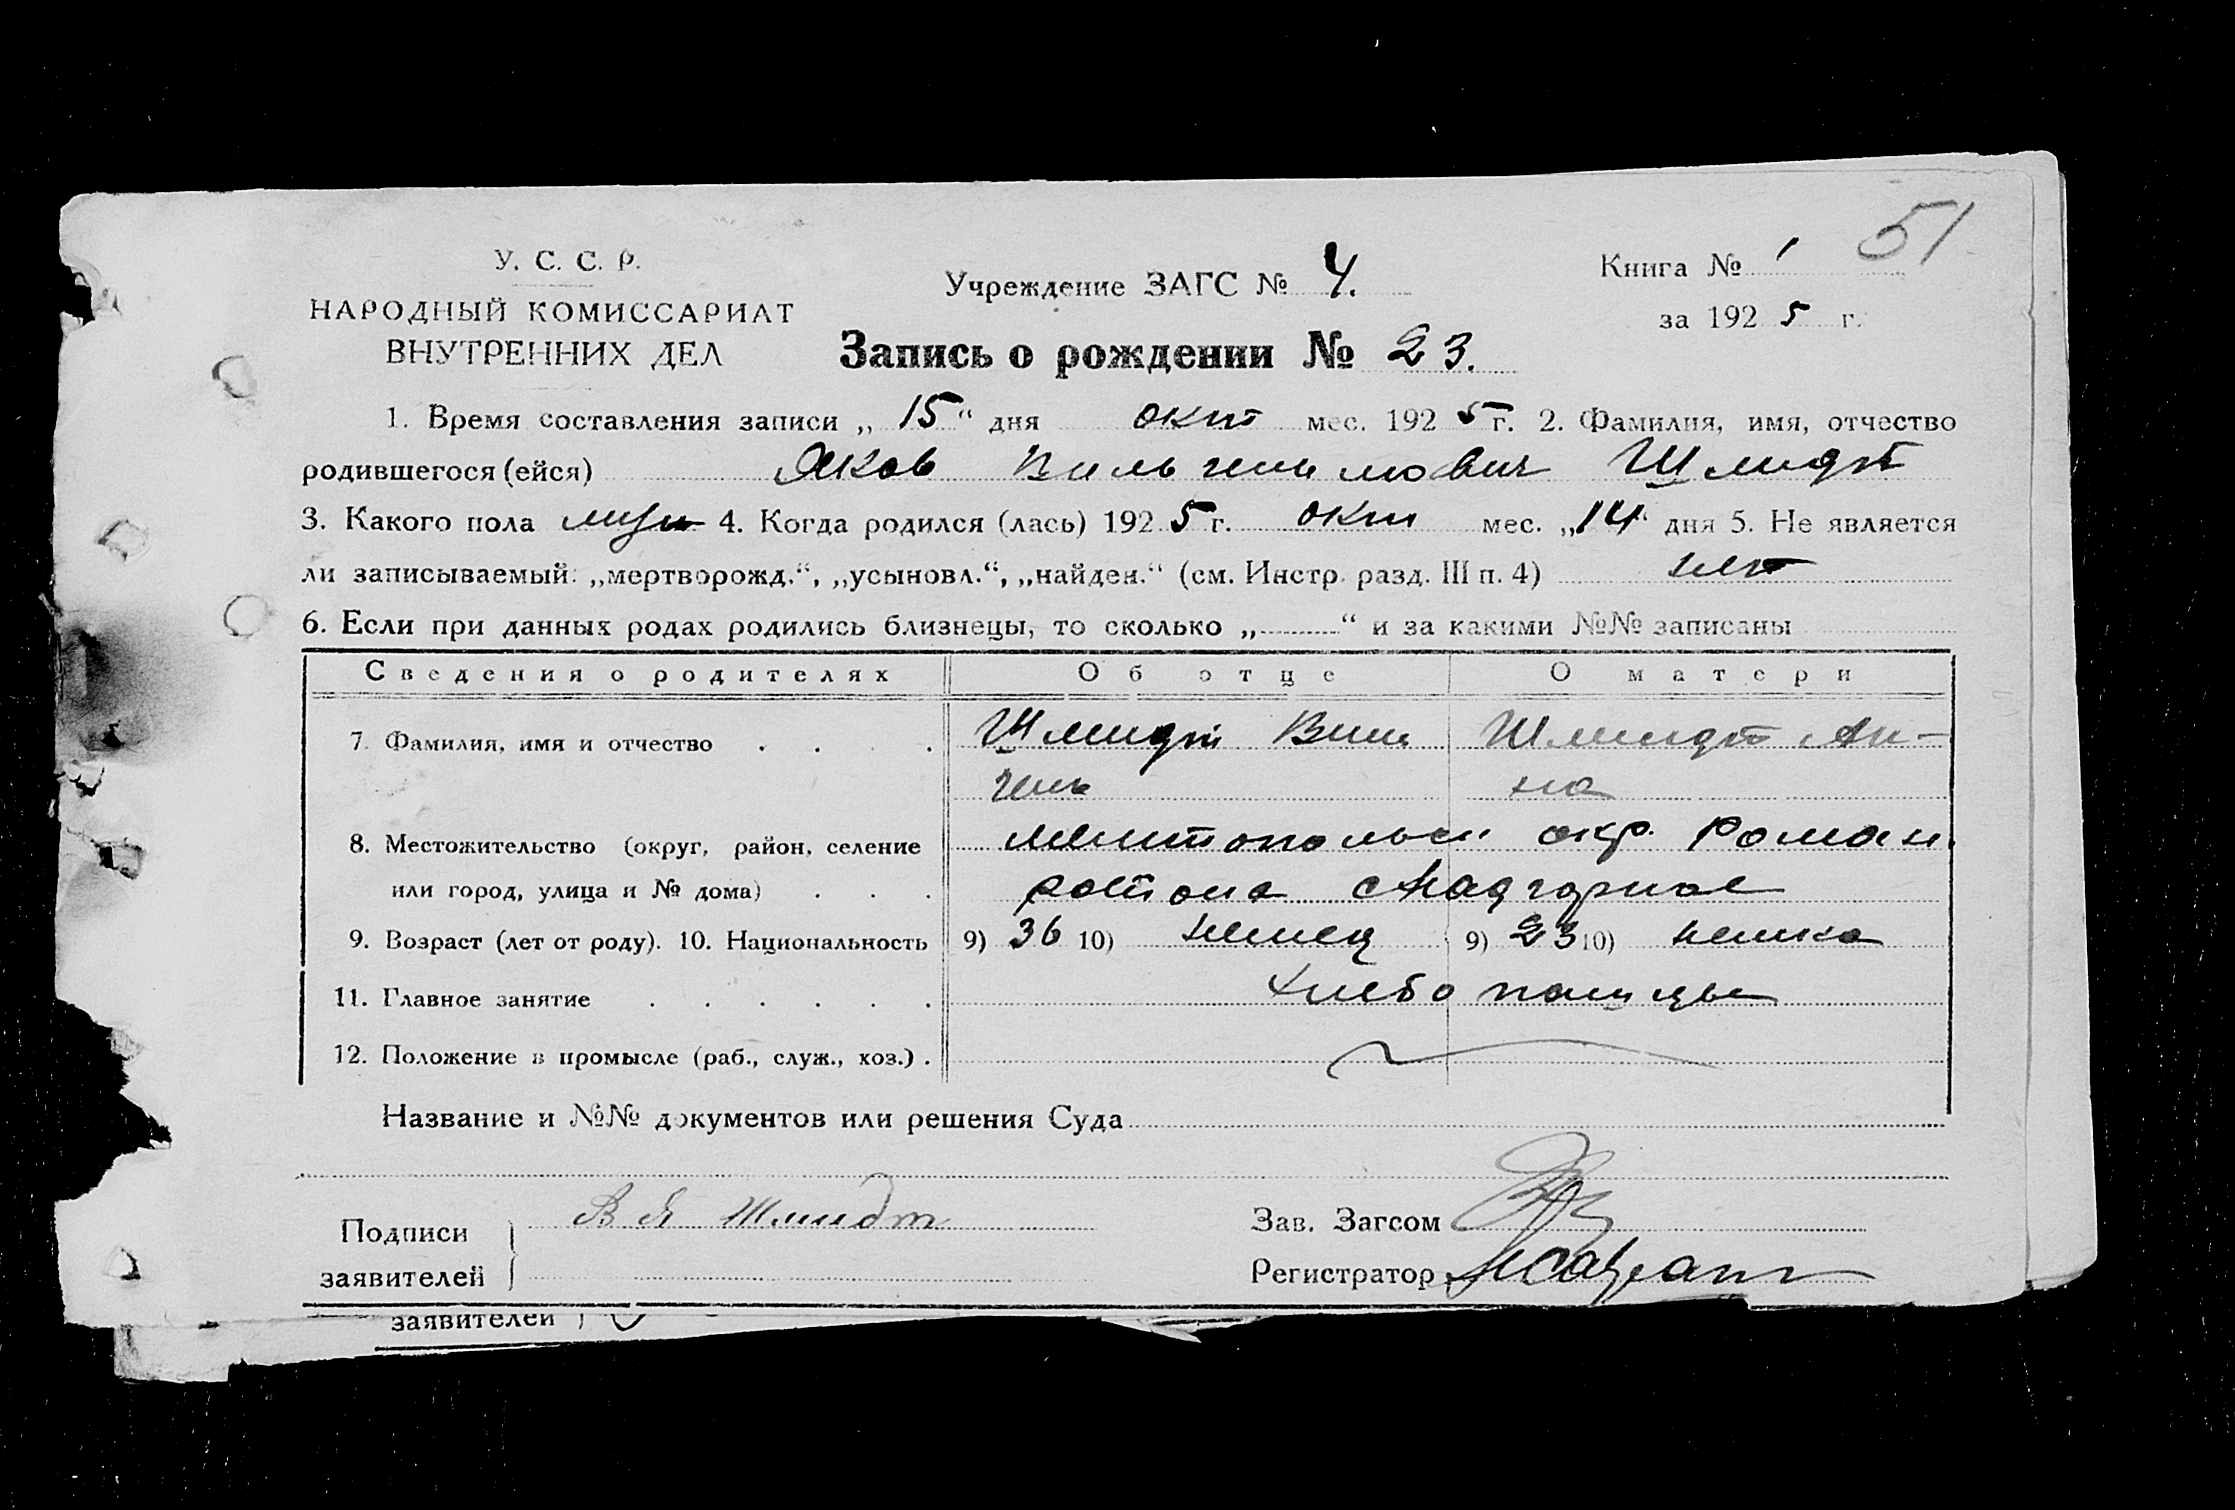 51
У. С. С. Р.
НАРОДНЫЙ КОМИССАРИАТ
ВНУТРЕННИХ ДЕЛ
Учреждение ЗАГС № 4.
Книга № 1
за 1925 г.
Запись о рождении № 23.
1. Время составления записи „ 15 “ дня окт мес. 1925 г. 2. Фамилия, имя, отчество
родившегося (ейся) Яков Вильгельмович Шмидт
3. Какого пола муж 4. Когда родился (лась) 1925 г. окт мес. „14“ дня 5. Не является
ли записываемый: „мертворожд.“, „усыновл.“, „найден.“ (см. Инстр. разд. III п. 4) нет
6. Если при данных родах родились близнецы, то сколько „ “ и за какими №№ записаны
Сведения о родителях Об отце О матери
7. Фамилия, имя и отчество Шмидт Виль Шмидт Ан-
гель на
8. Местожительство (округ, район, селение Мелитопольск окр. Роман.
или город, улица и № дома) района с Надгорное
9. Возраст (лет от роду). 10. Национальность 9) 36 10) немец 9) 23 10) немка
11. Главное занятие хлебопашцы
12. Положение в промысле (раб., служ., хоз.)
Название и №№ документов или решения Суда
Подписи заявителей В Я Шмидт
Зав. Загсом
Регистратор
заявителей